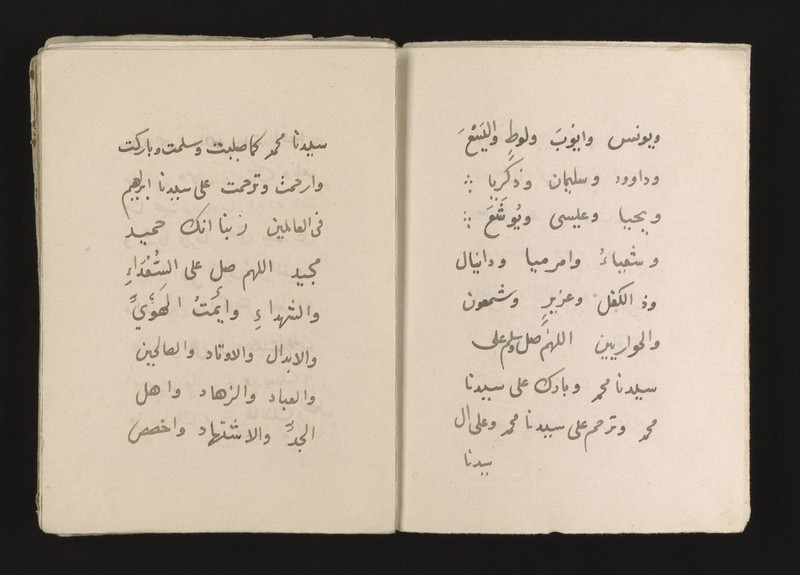 ويونس وايوبَ ولوطٍ واليَسَعَ
وداوود وسليمان وذكريا
ويحييا وعليسى ويُوشَعَ
وشعياءُ وامرميا ودانيال
وذ الكفل وعزيرٍ وشمعون
والحواريين اللهمَّ صل وسلم على
سيدنا محمد وبارك على سييدنا
محمد وترحم على سييدنا محمد وعلى ال
سيدنا
سيدنا محمد كما صليت وسلمت وباركت
وارحمت وترحمت على سييدنا ابرهيم
فى العالمين ربنا انك حميد
مجيد اللهم صل على السُّعَدَاءِ
والشهداءِ وايُمتُ الهَوَىِّ
والابدال والاوتاد والصالحين
والعباد والزهاد واهل
الجدِّ والاشتهاد واخصص